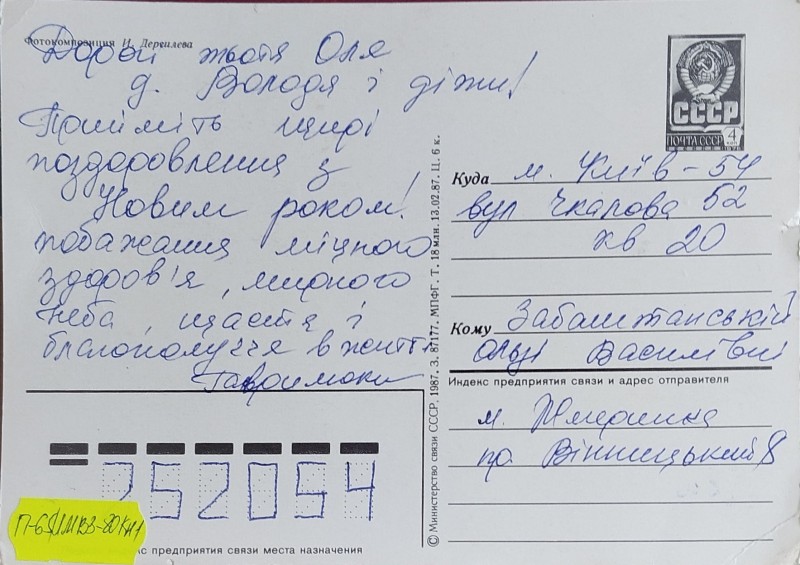 Фотокомпозиция И. Дергилева
Дорогі тьотя Оля
д. Володя і діти!
Прийміть щирі
поздоровлення з
Новим роком!
побажання міцного
здоров'я, мирного
неба, щастя і
благополуччя в житті
СССР
ПОЧТА СССР
4
Куда м. Київ-54
вул Чкалова 52
кв 20
Кому Забаштанській
Ользі Василівні
Индекс предприятия связи и адрес отправителя
м. Жмеринка
пр. Вінницький 8
252054
предприятия связи места назначения
© Министерство связи СССР, 1987. З. 87177. МПФГ. Т. 18 млн. 13.02.87. Ц. 6 к.